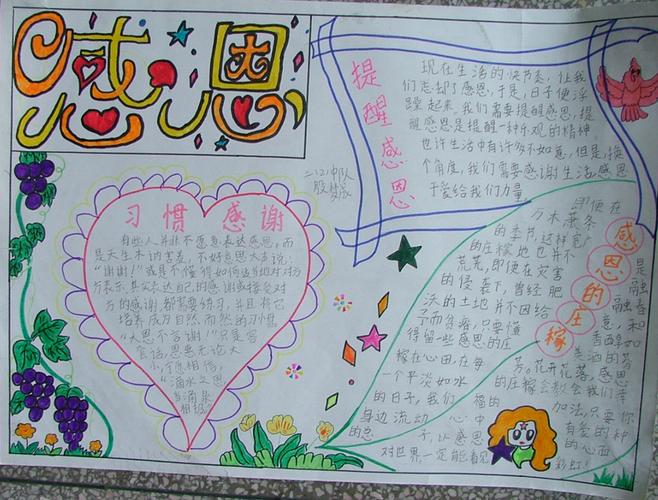 感恩
提醒感恩
现在生活的快节奏,让我
们忘却了感恩,于是,日子便浮
躁起来。我们需要提醒感恩,提
醒感恩是提醒一种乐观的精神
也许生活中有许多不如意,但是,换
个角度,我们需要感谢生活,感恩
于爱给我们力量。
二(2)中队
习惯 感谢
有些人并非不愿意表达感恩,而
是天生木讷害羞,不好意思大声说:
"谢谢!"或是不懂得如何适当地对对方
表示,其实表达自己的感谢或接受对
方的感谢,都需要练习,并且将它
培养成为自然而然的习惯
"大恩不言谢!"只是客
套话,恩惠无论大
小,千恩相传,
"滴水之恩
当涌泉
相报
感恩的庄稼
即便在
万木萧条
的季节,这种
的庄稼地也并不
荒芜,即使在灾害
的侵袭下,曾经肥
沃的土地并不因给
予而贫瘠,只要懂
得留一些感恩的庄
稼在心田,在每
一个平淡如水
的日子,我们
身边流动
对世界一定能看见
是
融融春
意,和
香醇如
美酒的芬
芳。花开花落,感恩
的庄稼会教会我们
加法,只要你
有爱的种
的心面
彩虹!